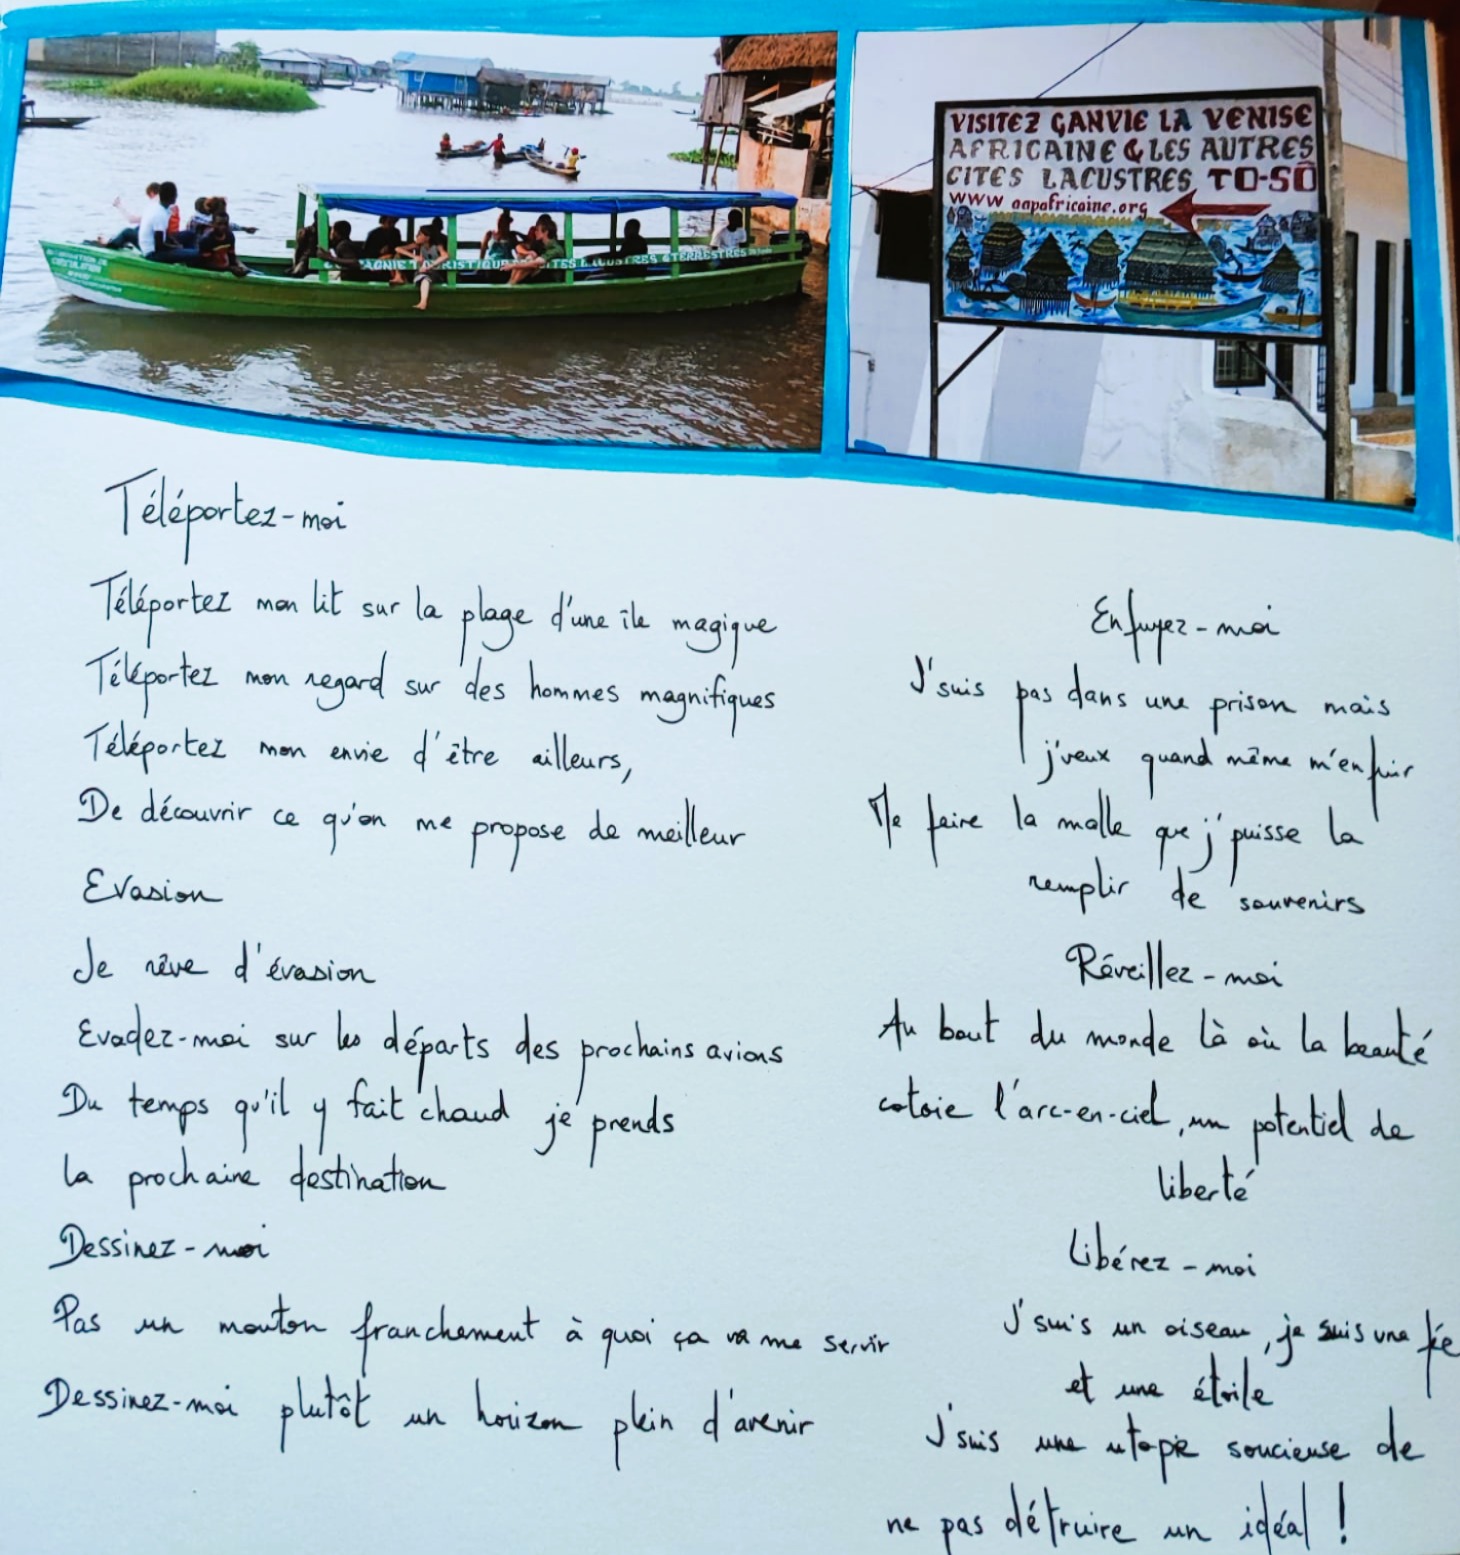 VISITEZ GANVIE LA VENISE
AFRICAINE & LES AUTRES
CITES LACUSTRES TO-SÔ
www aapafricaine.org
Téléportez-moi
Téléportez mon lit sur la plage d'une île magique
Téléportez mon regard sur des hommes magnifiques
Téléportez mon envie d'être ailleurs,
De découvrir ce qu'on me propose de meilleur
Evasion
Je rêve d'évasion
Evadez-moi sur les départs des prochains avions
Du temps qu'il y fait chaud je prends
la prochaine destination
Dessinez-moi
Pas un mouton franchement à quoi ça va me servir
Dessinez-moi plutôt un horizon plein d'avenir
Enfuyez-moi
J'suis pas dans une prison mais
j'veux quand même m'enfuir
Me faire la malle que j'puisse la
remplir de souvenirs
Réveillez-moi
Au bout du monde là où la beauté
cotoie l'arc-en-ciel, un potentiel de
liberté
Libérez-moi
J'suis un oiseau, je suis une fée
et une étoile
J'suis une utopie soucieuse de
ne pas détruire un idéal !